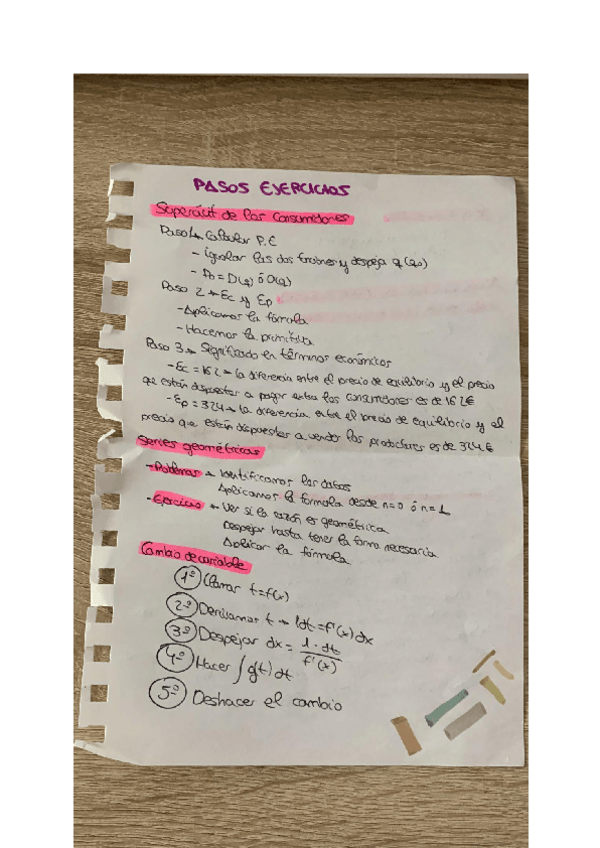 PASOS EJERCICIOS
Superávit de los consumidores
Paso 1 → Calcular P.E
- igualar las dos funciones y despeja q (q0)
- P0 = D(q) ó O(q)
Paso 2 → Ec y Ep
- Aplicamos la fórmula
- Hacemos la primitiva
Paso 3 → Significado en términos económicos
- Ec = 162 → la diferencia entre el precio de equilibrio y el precio
que están dispuestos a pagar extra los consumidores es de 162€
- Ep = 324 → la diferencia entre el precio de equilibrio y el
precio que están dispuestos a vender los productores es de 324€
Series geométricas
- Problemas → Identificamos los datos
Aplicamos la formula desde n=0 ó n=1
- Ejercicios → Ver si la razón es geométrica
Despejar hasta tener la forma necesaria
Aplicar la fórmula
Cambio de variable
1º Llamar t=f(x)
2º Derivamos t → 1dt = f'(x) dx
3º Despejar dx = 1·dt / f'(x)
4º Hacer ∫ g(t) dt
5º Deshacer el cambio